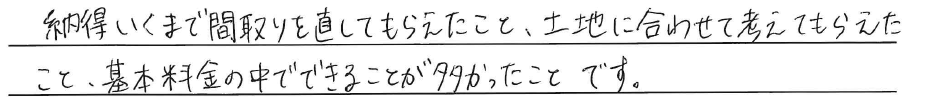 納得いくまで間取りを直してもらえたこと、土地に合わせて考えてもらえた
こと、基本料金の中でできることが多かったこと です。